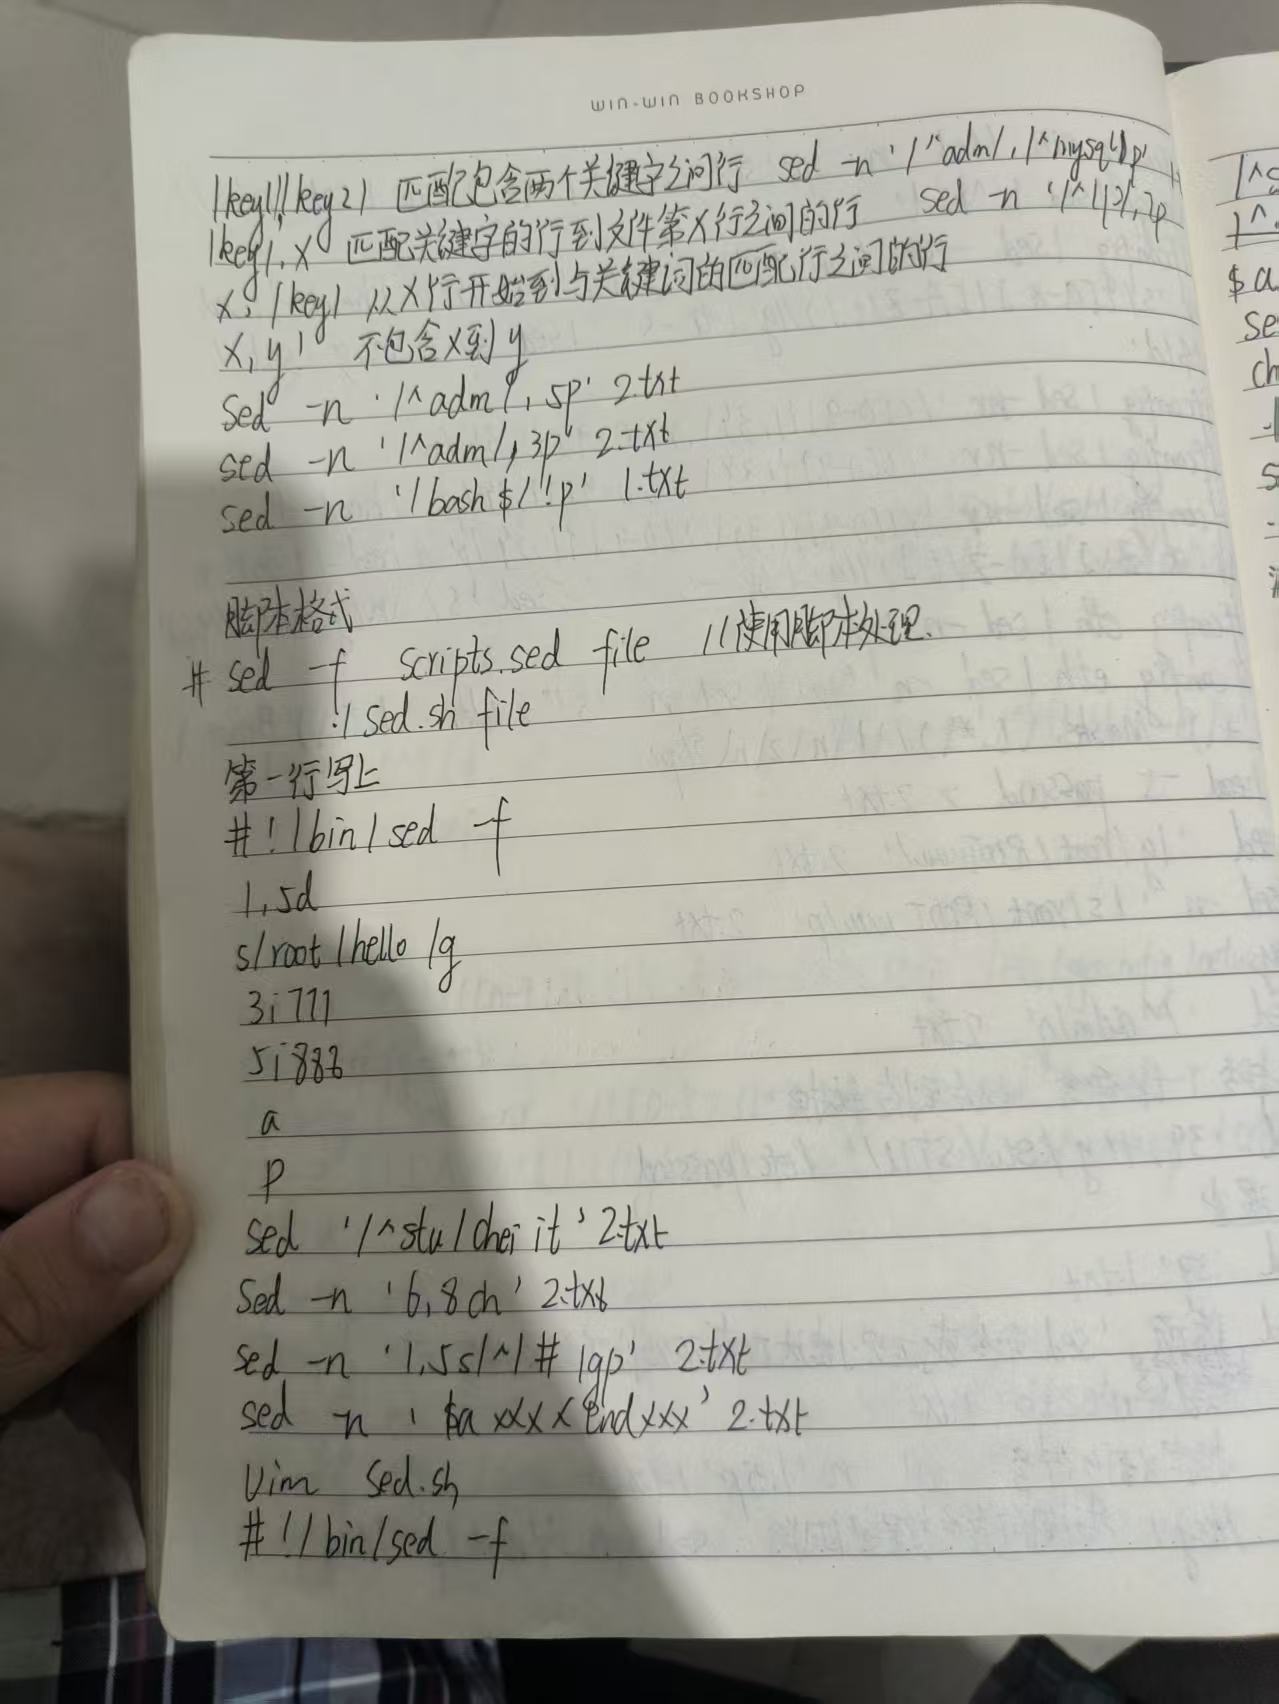 WIN-WIN BOOKSHOP
/key1/,/key2/ 匹配包含两个关键字之间行 sed -n '/^adm/,/^mysql/p'
/key/,x 匹配关键字的行到文件第x行之间的行 sed -n
x,/key/ 从x行开始到与关键词的匹配行之间的行
x,y! 不包含x到y
sed -n '/^adm/,5p' 2.txt
sed -n '/^adm/,3p' 2.txt
sed -n '/bash$/!p' 1.txt
脚本格式
# sed -f scripts.sed file //使用脚本处理.
./sed.sh file
第一行写上
#!/bin/sed -f
1,5d
s/root/hello/g
3i777
5i888
a
p
sed '/^stu/chei it' 2.txt
sed -n '6,8ch' 2.txt
sed -n '1,5s/^/#/gp' 2.txt
sed -n '$a xxxxendxxx' 2.txt
vim sed.sh
#!/bin/sed -f
$a
se